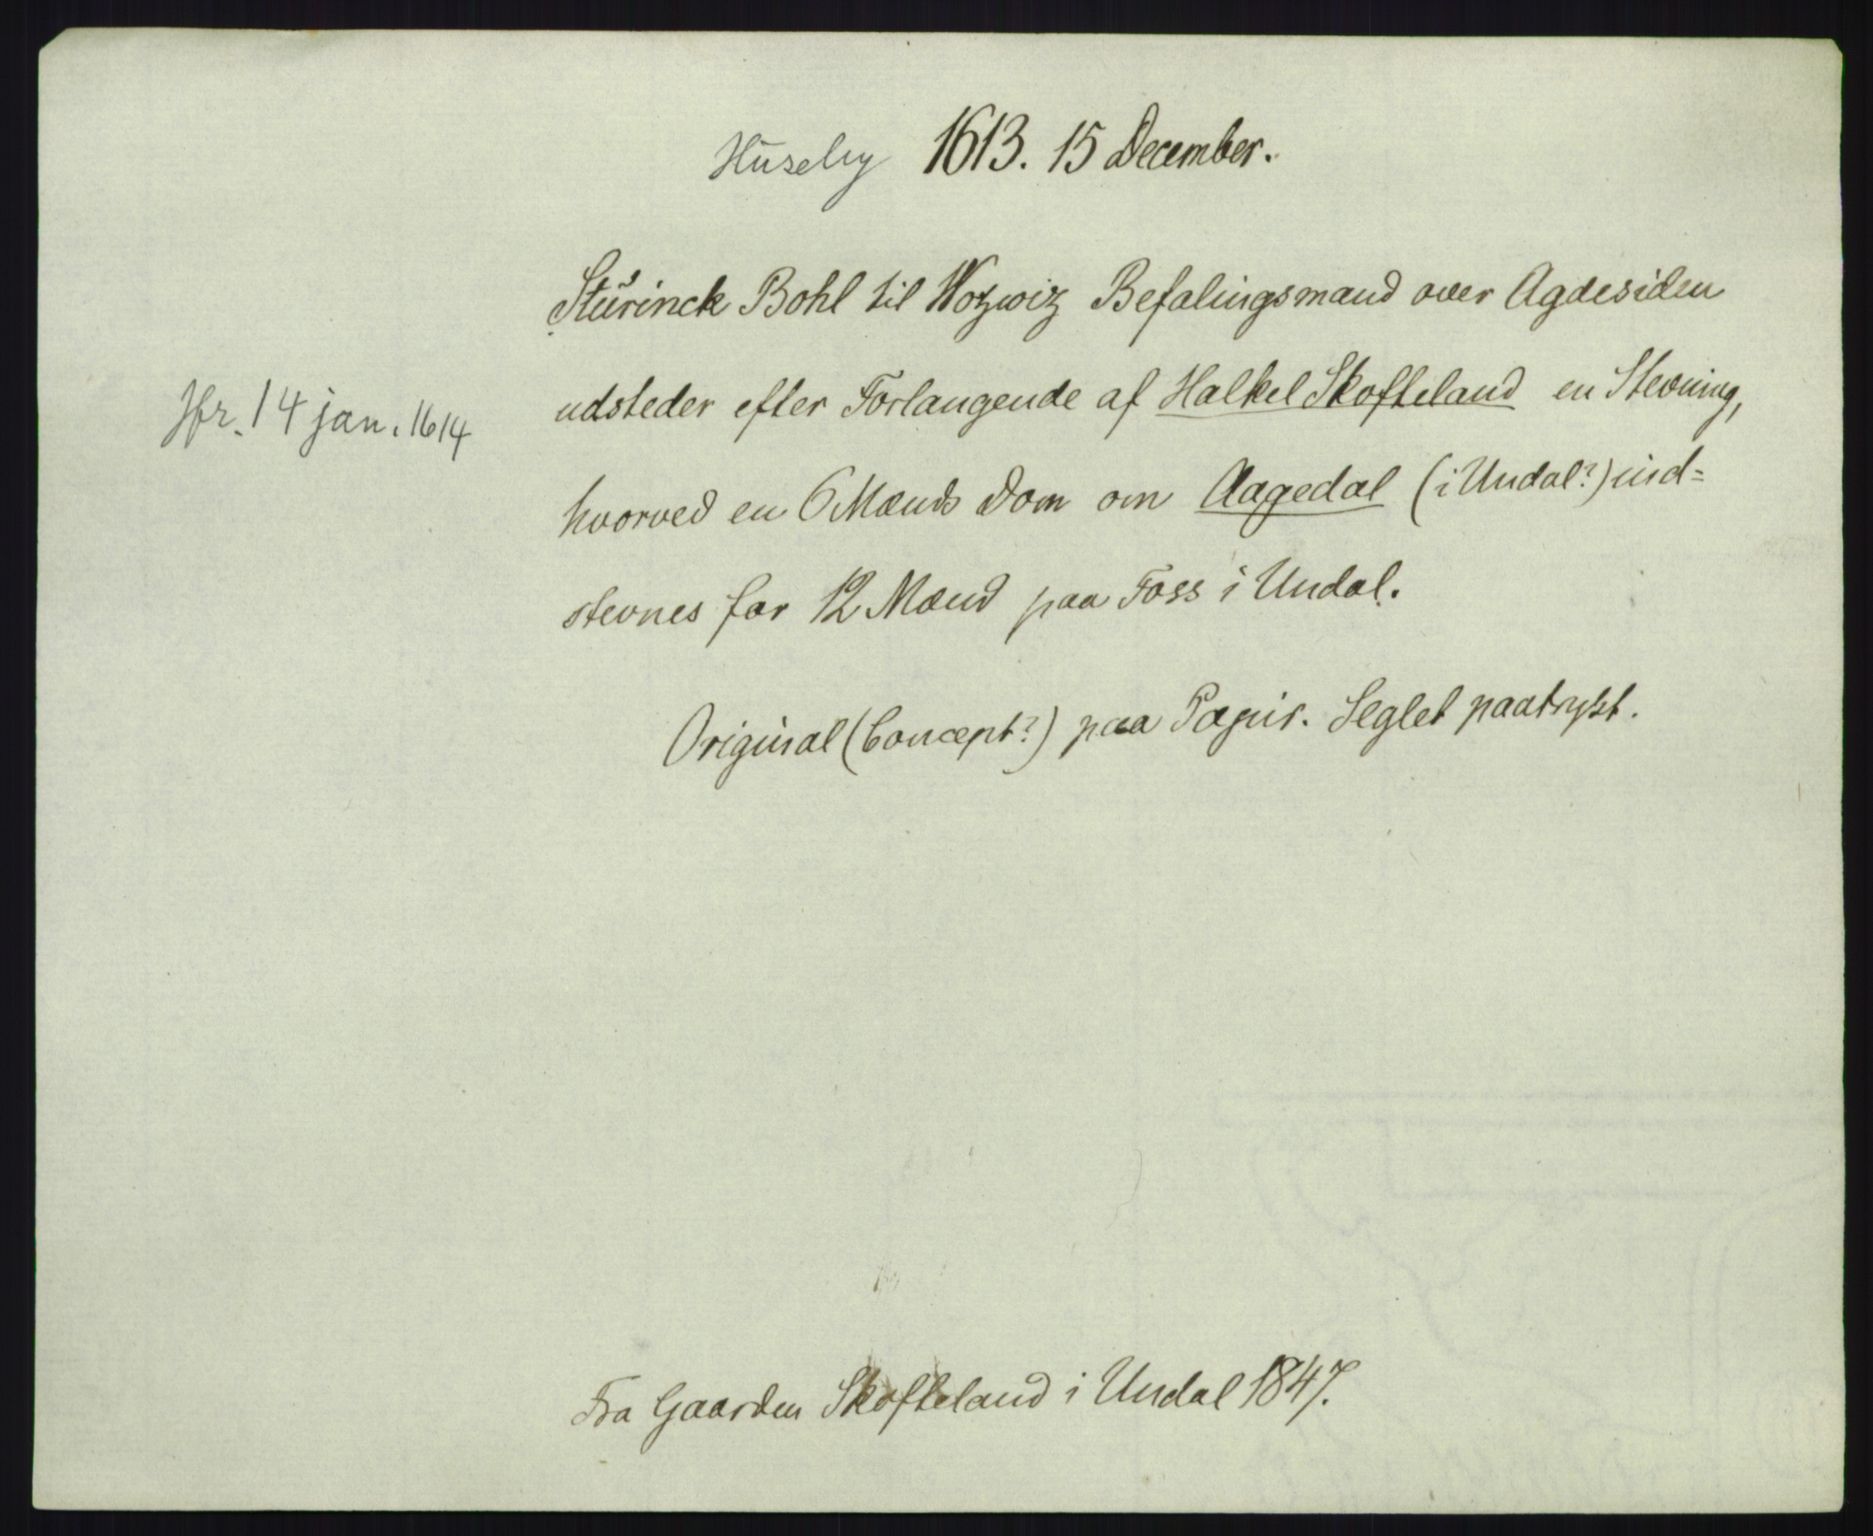 Huseby 1613. 15 December.
Stürinck Bohl til Wozwiz Befalingsmand over Agdesiden
Jfr. 14 jan. 1614
udsteder efter Forlangende af Halkel Skofteland en Stevning,
hvorved en 6 Mænds Dom om Aagedal (i Undal?) ind-
stevnes for 12 Mænd paa Foss i Undal.
Original (Concept?) paa Papir. Seglet paatrykt.
Fra Gaarden Skofteland i Undal 1847.